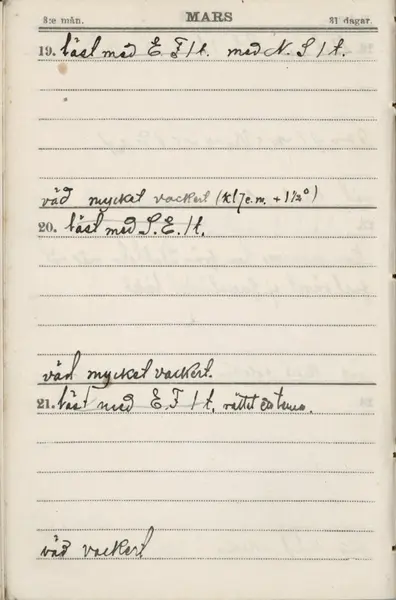 3:e mån. MARS 31 dagar.
19. läst med E. F 1 t. med N. S 1 t.
väd mycket vackert (kl 7 e.m. + 1½°)
20. läst med S. E. 1 t.
väd mycket vackert.
21. läst med E. F 1 t. rättat
väd vackert